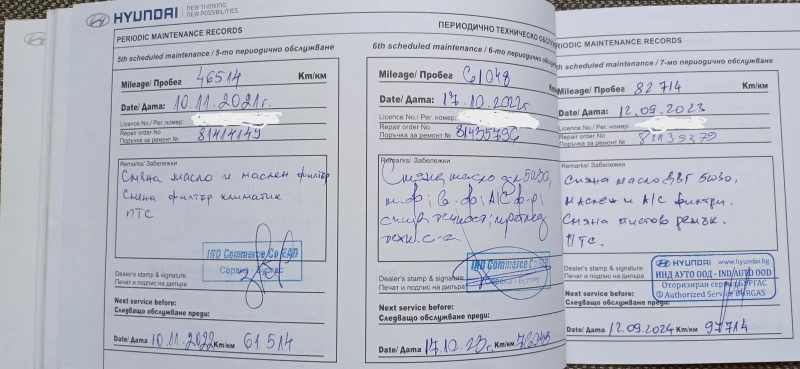 HYUNDAI
NEW THINKING.
NEW POSSIBILITIES.
PERIODIC MAINTENANCE RECORDS
5th scheduled maintenance / 5-то периодично обслужване
Mileage/ Пробег 46514 Km/км
Date/ Дата: 10.11.2021г.
Licence No./ Рег. номер:
Repair order No
Поръчка за ремонт № 81414149
Remarks/ Забележки
Смяна масло и маслен филтър
Смяна филтър климатик
ПТС
IND Commerce Co EAD
Сервиз - Бургас
Dealer's stamp & signature
Печат и подпис на дилъра
Next service before:
Следващо обслужване преди:
Date/ Дата 10.11.2022 Km/км 61514
ПЕРИОДИЧНО ТЕХНИЧЕСКО
6th scheduled maintenance / 6-то периодично
Mileage/ Пробег 61048
Date/ Дата: 17.10.2022г.
Licence No./ Рег. номер:
Repair order No
Поръчка за ремонт № 81435796
Remarks/ Забележки
Смяна масло 5W30,
IND Commerce Co
Dealer's stamp & signature
Печат и подпис на дилъра
Next service before:
Следващо обслужване преди:
Date/ Дата 17.10.23г. Km/км 76048
PERIODIC MAINTENANCE RECORDS
scheduled maintenance / 7-мо периодично обслужване
Mileage/ Пробег 82714 Km/км
Date/ Дата: 12.09.2023
Licence No./ Рег. номер:
Repair order No
Поръчка за ремонт № 81139379
Remarks/ Забележки
Смяна масло ДВГ 5W30,
маслен и A/C филтри.
Смяна пистов ремък.
ПТС.
HYUNDAI www.hyundai.bg
ИНД АУТО ООД - IND AUTO OOD
Оторизиран сервиз БУРГАС
Authorized Service BURGAS
Dealer's stamp & signature
Печат и подпис на дилъра
Next service before:
Следващо обслужване преди:
Date/ Дата 12.09.2024 Km/км 97714